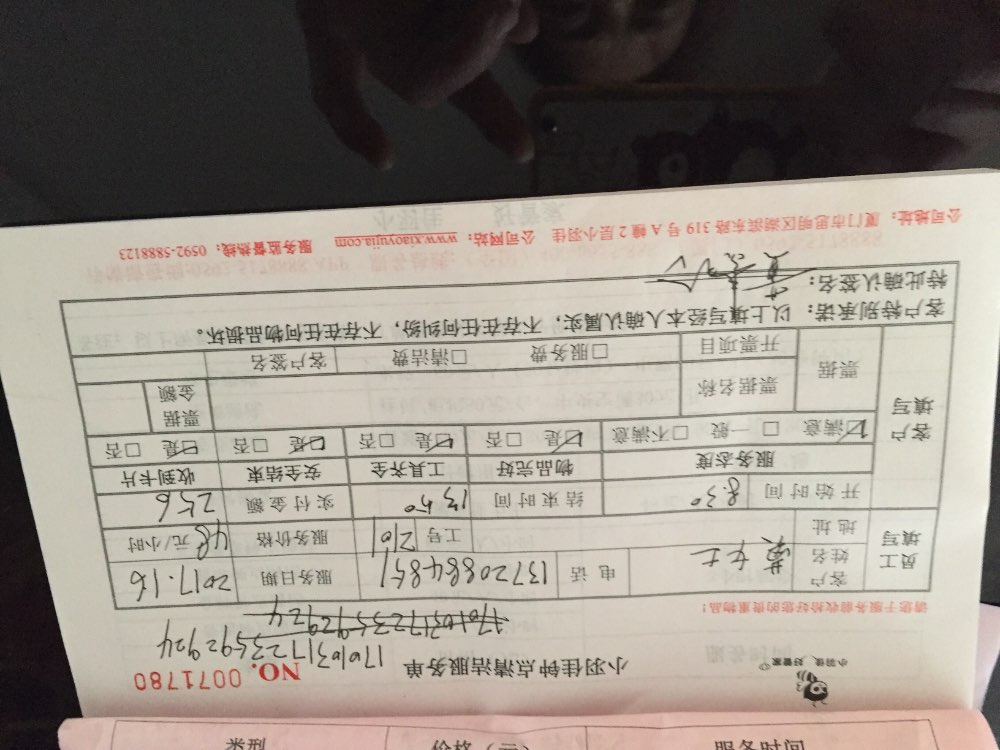 小羽佳 好管家
小羽佳钟点清洁服务单 NO. 0071780
17010317235992924
17010317235992924
请您于服务前收拾好您的贵重物品!
员工填写 客户姓名 黄女士 电话 13720884851 服务日期 2017.1.6
地址 工号 2101 服务价格 48元/小时
开始时间 8.30 结束时间 13.50 实付金额 256
客户填写 服务态度 物品完好 工具齐全 安全结束 收到卡片
☑满意 □一般 □不满意 ☑是 □否 ☑是 □否 ☑是 □否 ☑是 □否
票据 票据名称 票据金额
开票项目 □服务费 □清洁费 客户签名
客户特别承诺:以上填写经本人确认属实,不存在任何纠纷,不存在任何物品损坏。
特此确认签名:
公司地址:厦门市思明区湖滨东路319号A幢2层小羽佳 公司网站:www.xiaoyujia.com 服务监督热线:0592-5888123
类型 价格(元) 服务时间